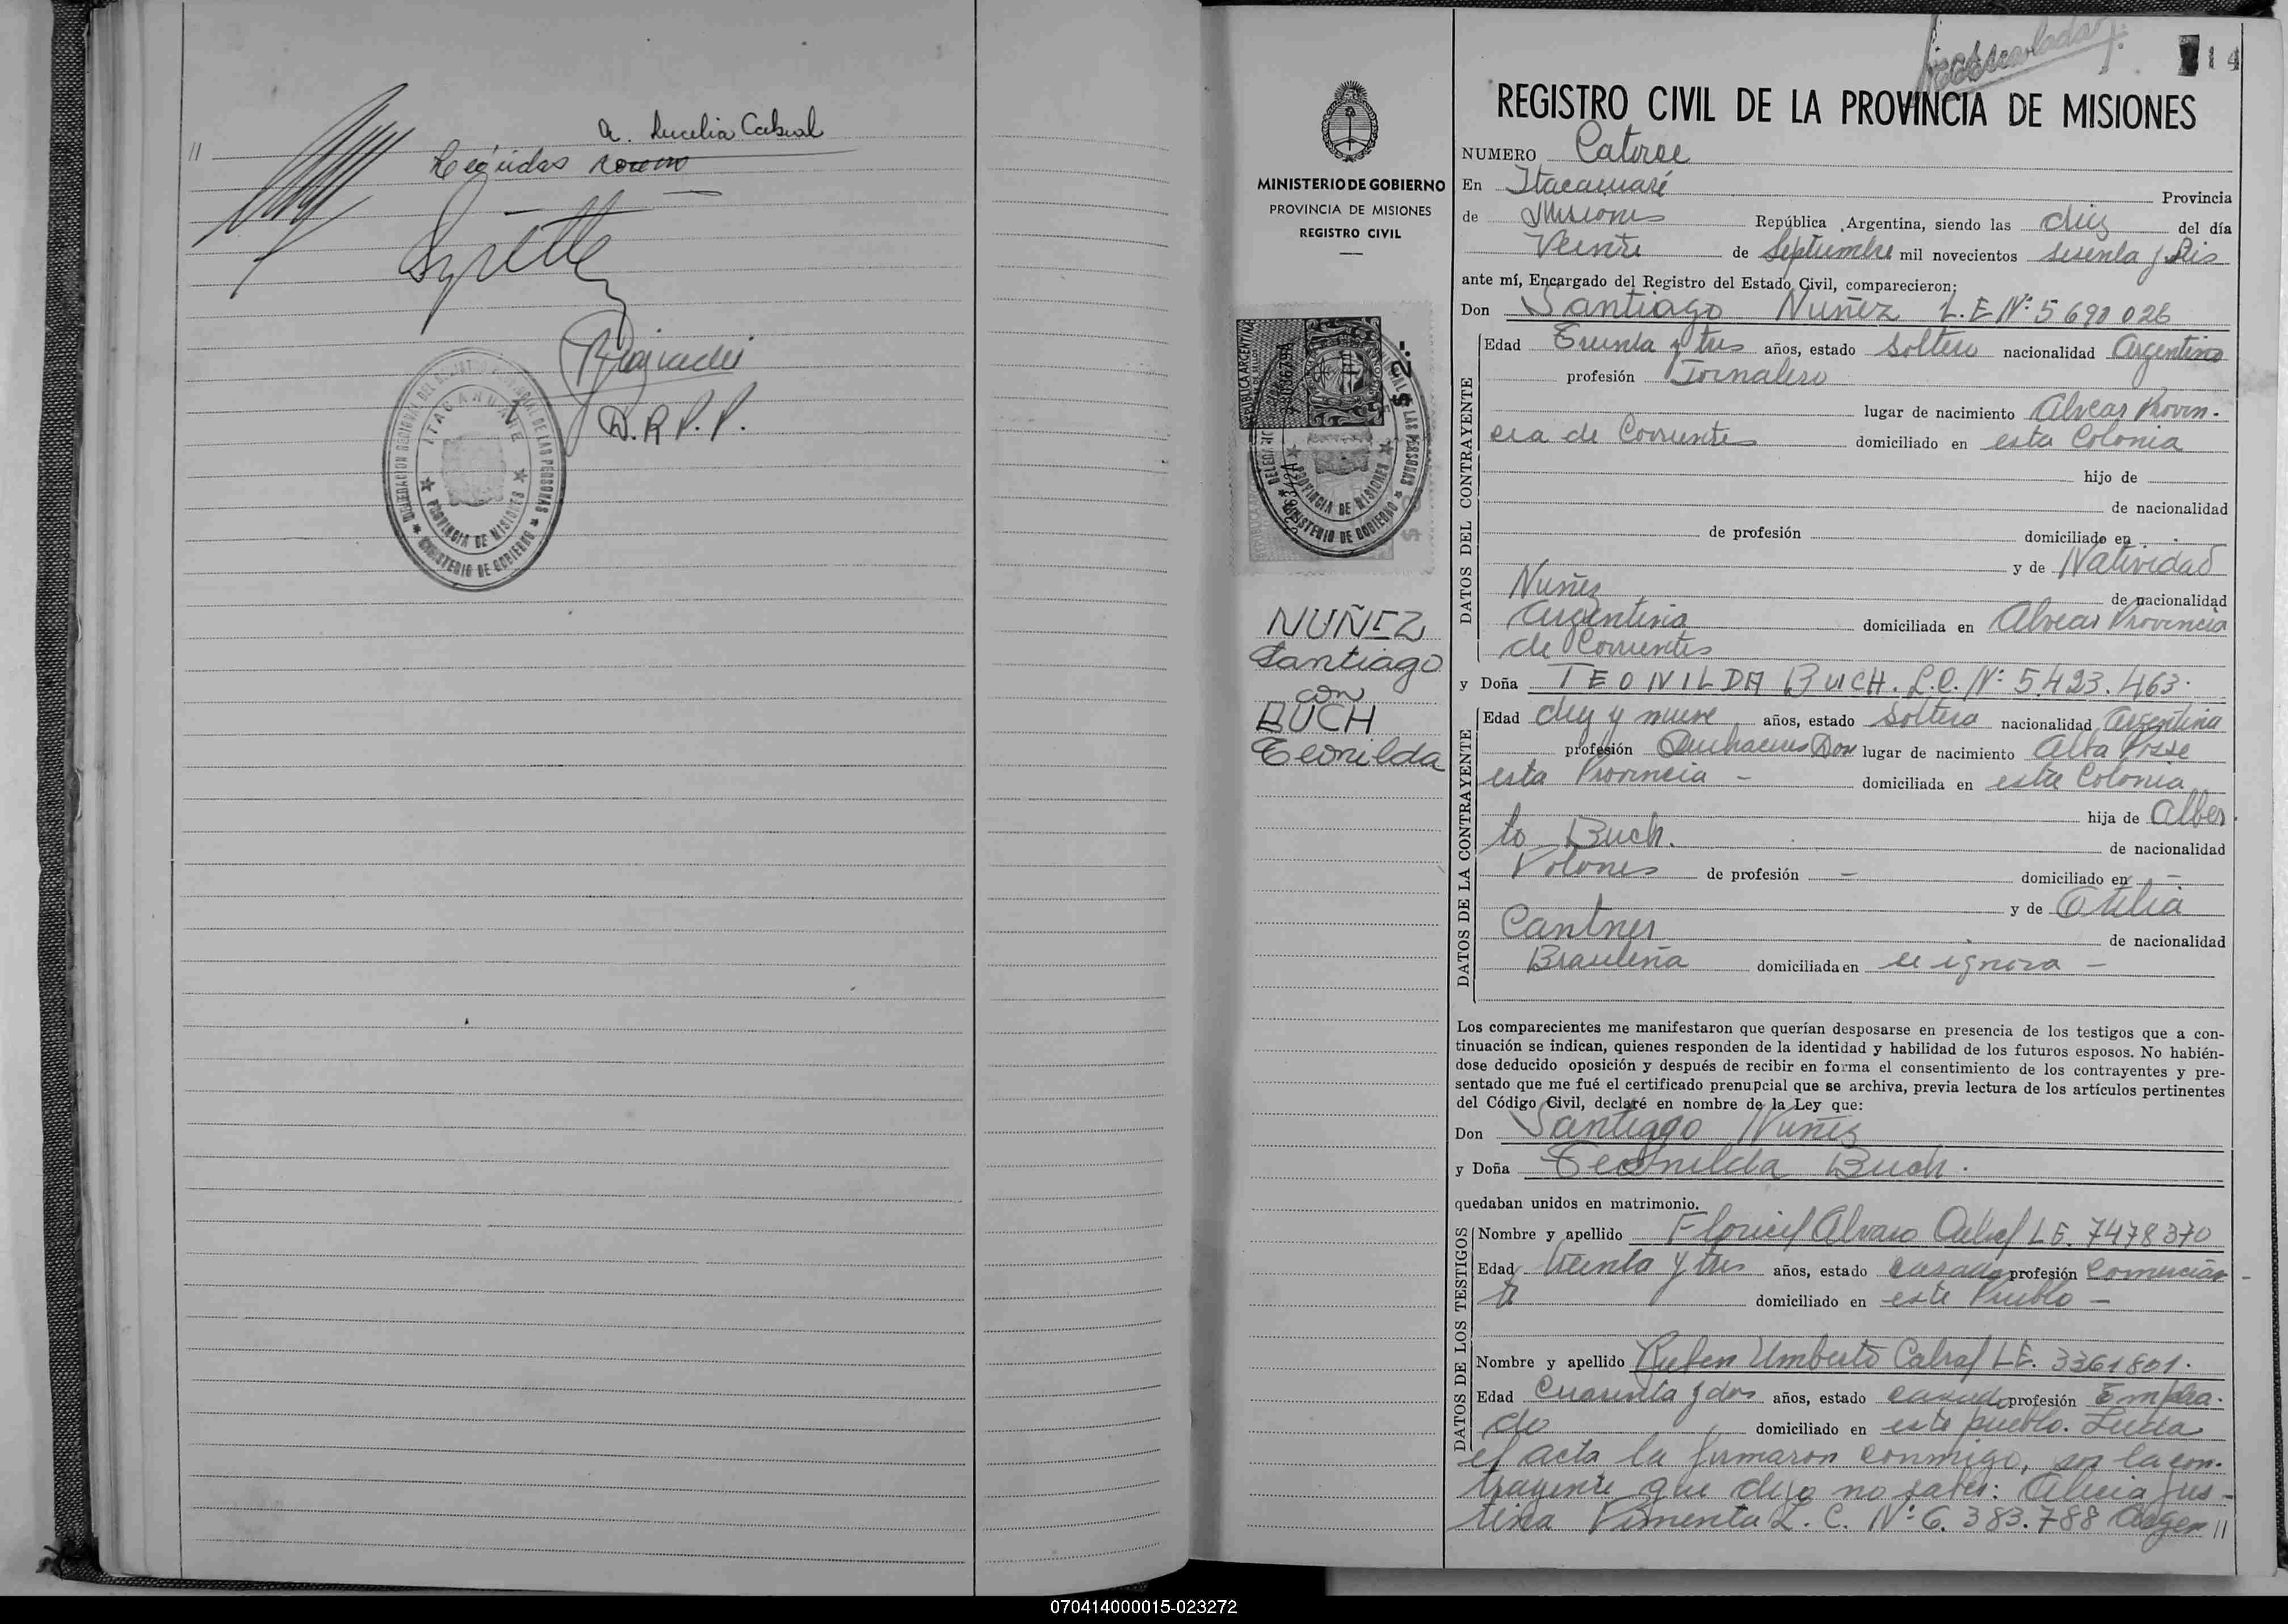 a. Lucilia Cabral
Leguidas
D. R. P. P.
ITACARUARE
PROVINCIA DE MISIONES
MINISTERIO DE GOBIERNO
14
REGISTRO CIVIL DE LA PROVINCIA DE MISIONES
NUMERO Catorce
En Itacaruaré Provincia
de Misiones República Argentina, siendo las diez del día
Veinte de Septiembre mil novecientos sesenta y Seis
ante mí, Encargado del Registro del Estado Civil, comparecieron:
Don Santiago Nuñez L.E Nº 5690026
DATOS DEL CONTRAYENTE
Edad Treinta y tres años, estado Soltero nacionalidad Argentino
profesión Jornalero
lugar de nacimiento Alvear Provin-
cia de Corrientes domiciliado en esta Colonia
hijo de
de nacionalidad
de profesión domiciliado en
y de Natividad
Nuñez de nacionalidad
Argentina domiciliada en Alvear Provincia
de Corrientes
y Doña TEONILDA BUCH. L.C. Nº 5.423.463.
DATOS DE LA CONTRAYENTE
Edad diez y nueve años, estado Soltera nacionalidad Argentina
profesión Quehaceres Dom lugar de nacimiento Alba Posse
esta Provincia - domiciliada en esta Colonia
hija de Alber
to Buch. de nacionalidad
Polones de profesión - domiciliado en -
y de Otilia
Cantner de nacionalidad
Brasileña domiciliada en se ignora -
Los comparecientes me manifestaron que querían desposarse en presencia de los testigos que a con-
tinuación se indican, quienes responden de la identidad y habilidad de los futuros esposos. No habién-
dose deducido oposición y después de recibir en forma el consentimiento de los contrayentes y pre-
sentado que me fué el certificado prenupcial que se archiva, previa lectura de los artículos pertinentes
del Código Civil, declaré en nombre de la Ley que:
Don Santiago Nuñez
y Doña Teonilda Buch.
quedaban unidos en matrimonio.
DATOS DE LOS TESTIGOS
Nombre y apellido Alvaro LE. 7478370
Edad treinta y tres años, estado casado profesión Comercian-
te domiciliado en este Pueblo -
Nombre y apellido Ruben Umberto Cabral LE. 3361801.
Edad Cuarenta y dos años, estado casado profesión Emplea-
do domiciliado en este pueblo. Leida
el acta la firmaron conmigo, por la con-
trayente que dijo no saber: Alicia Jus-
tina Pimenta L. C. Nº 6.383.788 Argen //
MINISTERIO DE GOBIERNO
PROVINCIA DE MISIONES
REGISTRO CIVIL
REPUBLICA ARGENTINA
$ 2.-
PROVINCIA DE MISIONES
MINISTERIO DE GOBIERNO
NUÑEZ
Santiago
con
BUCH
Teonilda
070414000015-023272